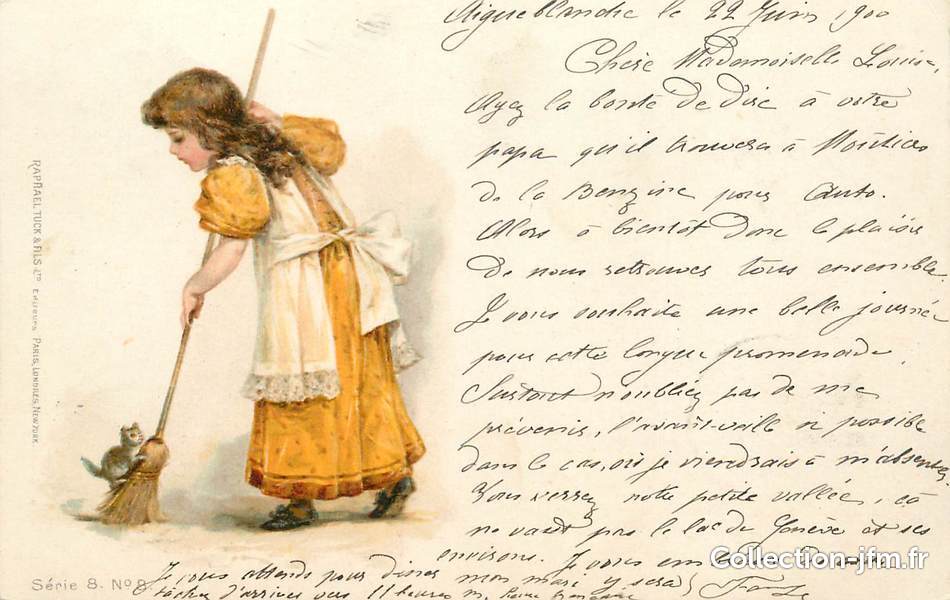 Aigueblanche le 22 Juin 1900
Chère Mademoiselle Louise,
Ayez la bonté de dire à votre
papa qu'il trouvera à Moûtiers
de la Benzine pour l'auto.
Alors à bientôt donc le plaisir
de nous retrouver tous ensemble.
Je vous souhaite une belle journée
pour cette longue promenade.
Surtout n'oubliez pas de me
prévenir, l'avant-veille si possible
dans le cas, où je viendrais à m'absenter
Vous verrez notre petite vallée, çà
ne vaut pas le lac de Genève et ses
environs. Je vous
Je vous attends pour dîner mon mari y sera
tâchez d'arriver vers 11 heures
RAPHAEL TUCK & FILS LTD EDITEURS PARIS, LONDRES, NEW YORK
Série 8. No 8.
Collection-jfm.fr